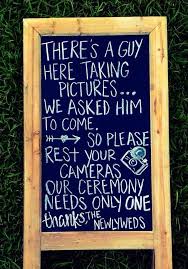 THERE'S A GUY
HERE TAKING
PICTURES...
WE ASKED HIM
TO COME.
SO PLEASE
REST YOUR
CAMERAS
OUR CEREMONY
NEEDS ONLY ONE
thanks, THE
NEWLYWEDS